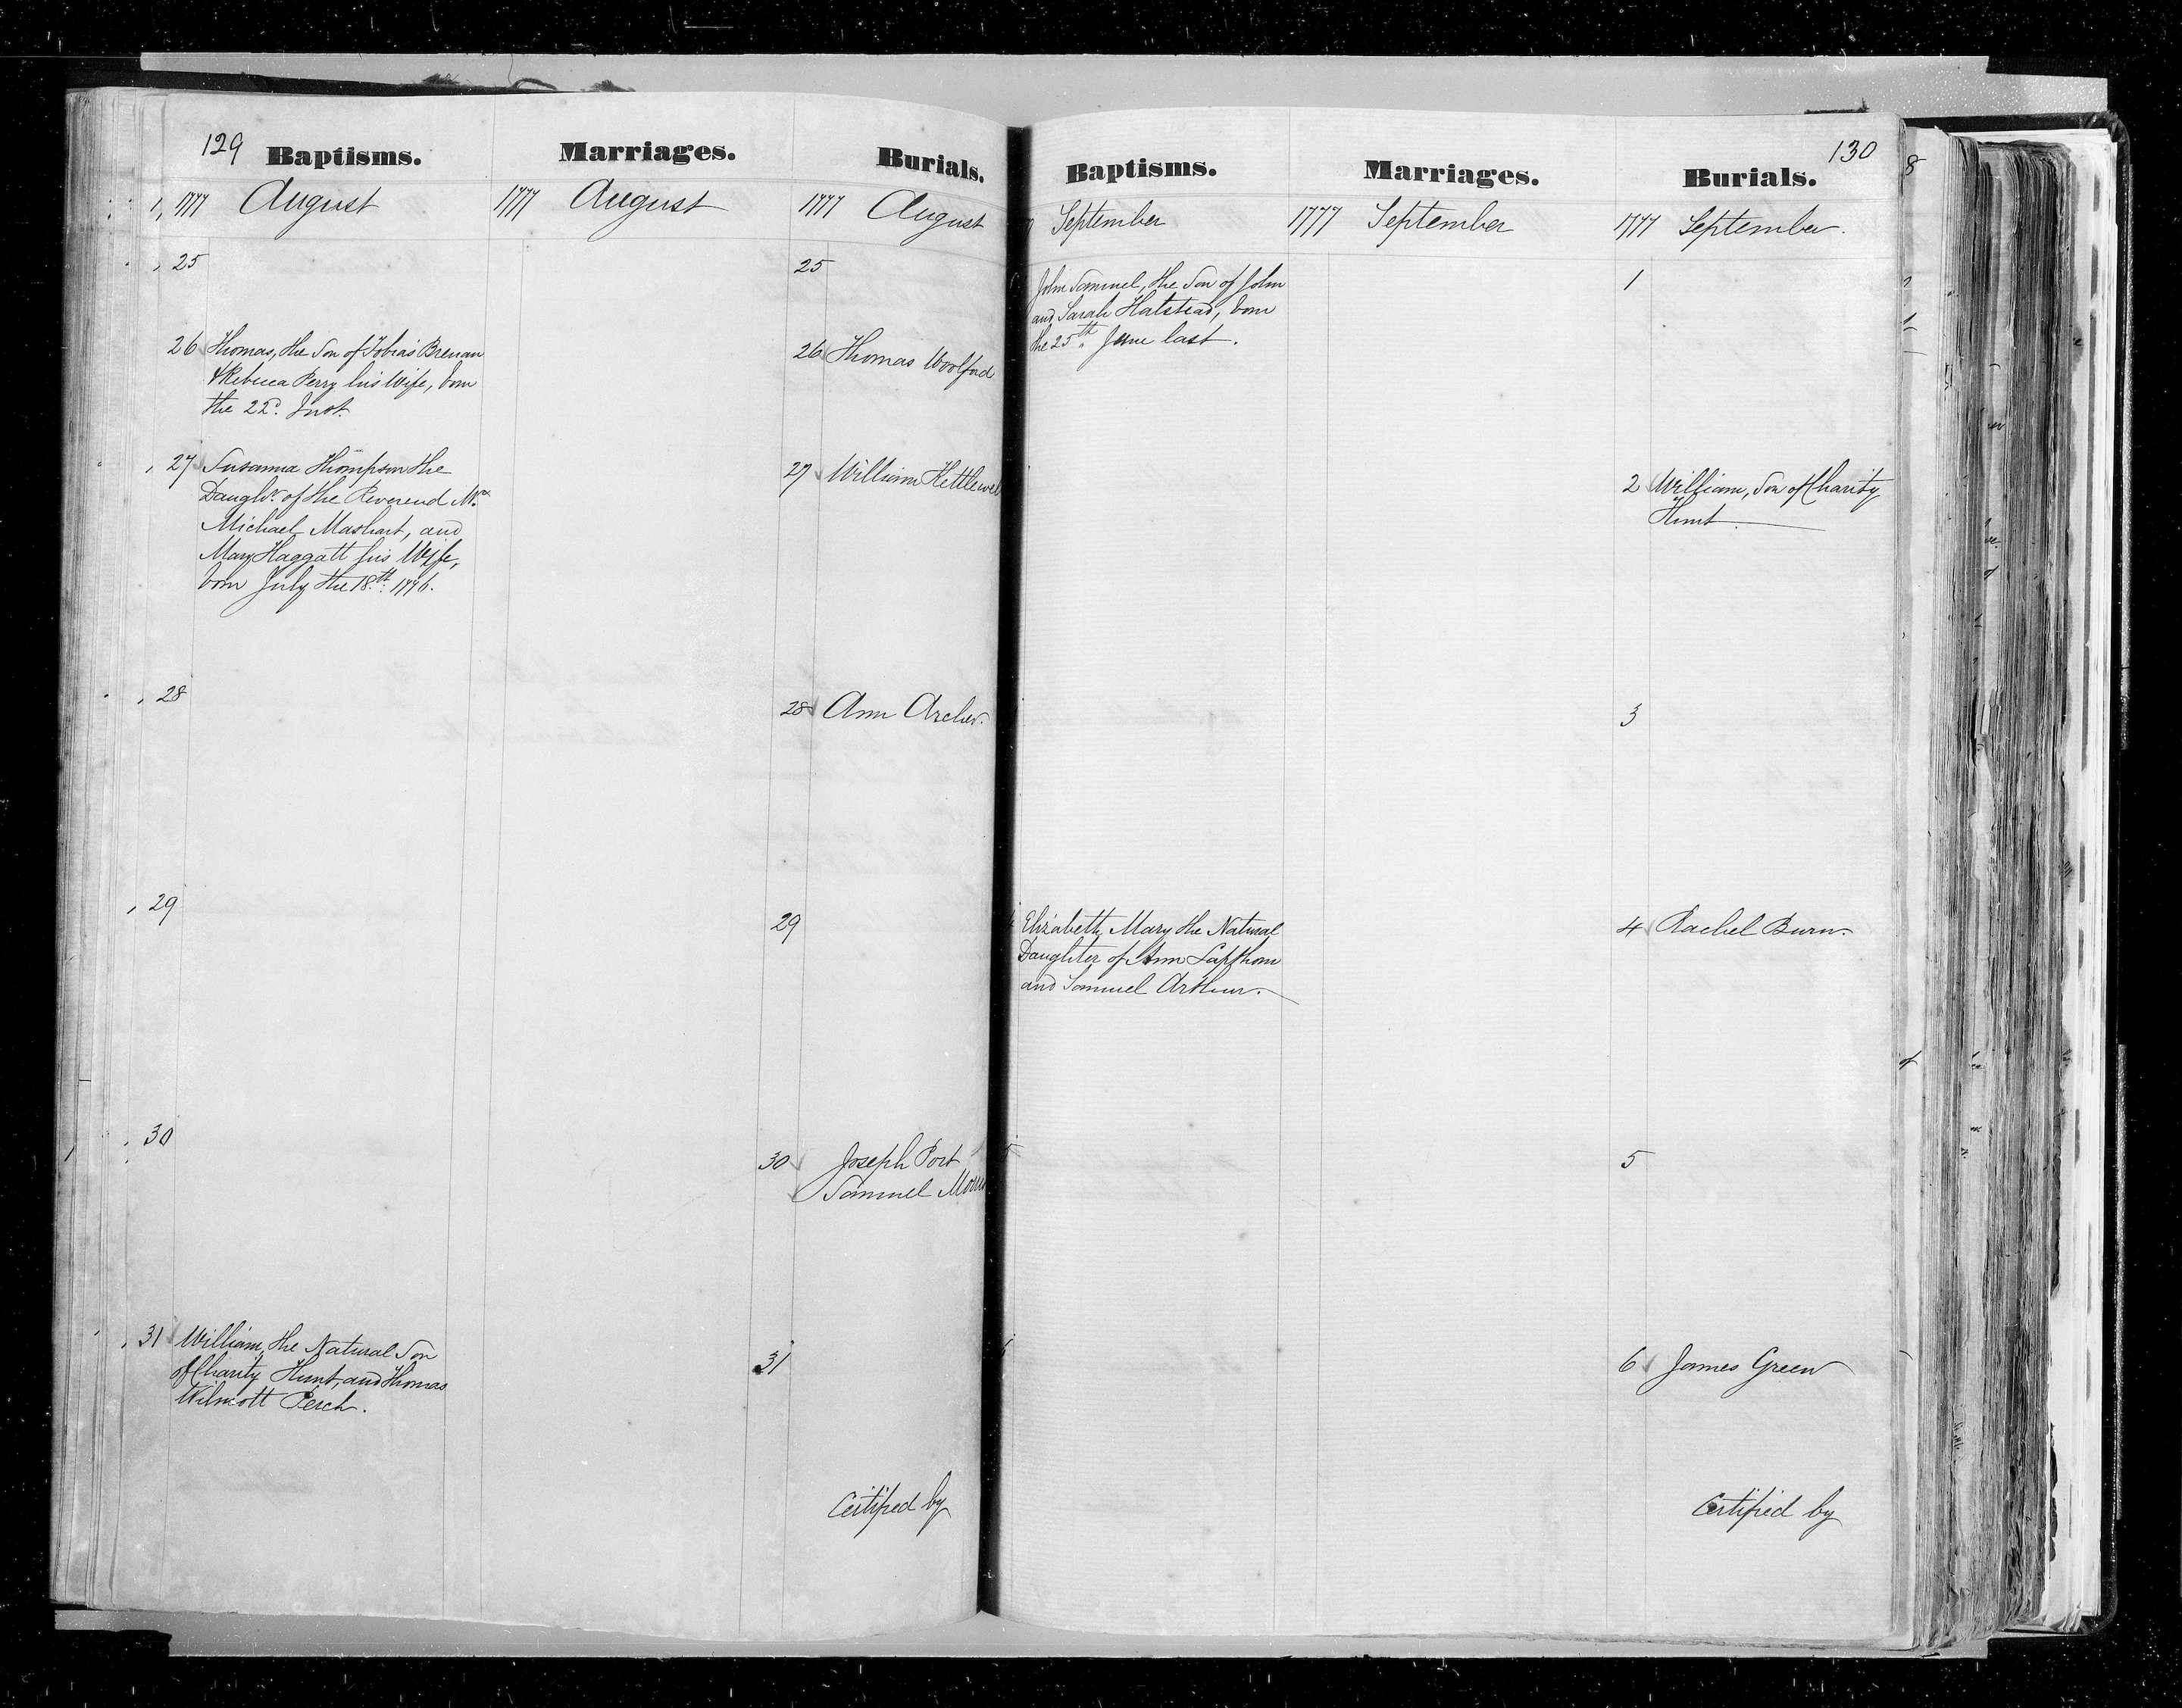 129
Baptisms.
1777 August
25
26 Thomas, the Son of Tobias Brenan
& Rebecca Perry his Wife, born
the 22d. Inst.
27 Susanna Thompson the
Daughr. of the Reverend Mr.
Michael Mashart, and
Mary Haggatt his Wife,
born July the 18th. 1776.
28
29
30
31 William, the Natural Son
of Charity Hunt, and Thomas
Wilmott Perch.
Marriages.
1777 August
Burials.
1777 August
25
26 Thomas Woolford
27 William Kettlewel
28 Ann Archer.
29
30 Joseph Port
Samuel
31
Certified by
130
Baptisms.
September
John Samuel, the Son of John
and Sarah Halstead, born
the 25th. June last.
Elizabeth Mary the Natural
Daughter of Ann Lapthorn
and Samuel Arthur.
Marriages.
1777 September
Burials.
1777 September.
1
2 William, Son of Charity
Hunt.
3
4 Rachel Burn.
5
6 James Green
Certified by